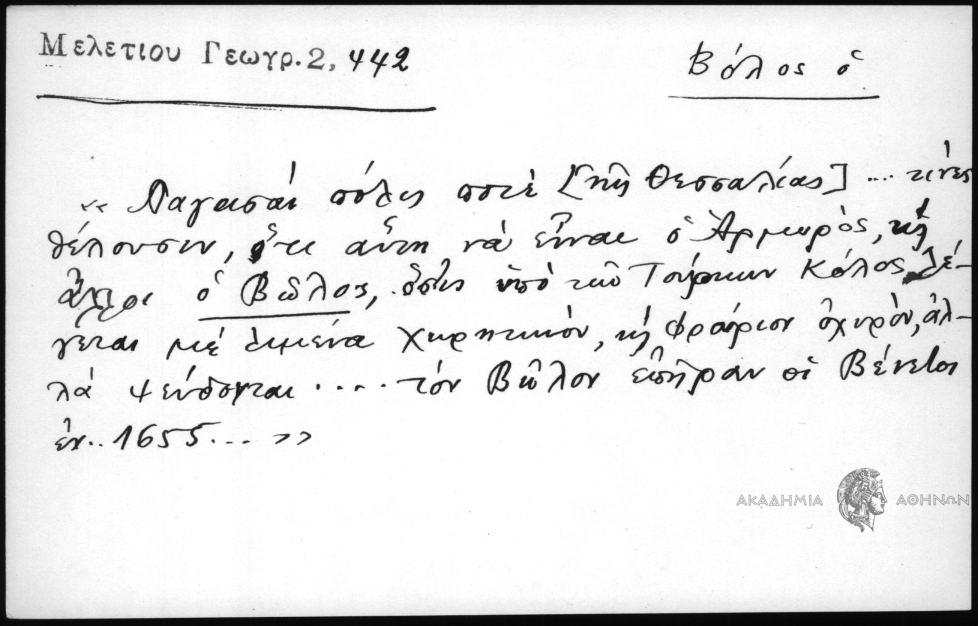 Μελετίου Γεωγρ. 2, 442
Βόλος ὁ
« Παγασαί πόλις ποτὲ [τῆς Θεσσαλίας] .... τινὲς
θέλουσιν, ὅτι αὕτη νὰ εἶναι ὁ Ἀρμυρὸς, κ̀
ἄλλοι ὁ Βῶλος, ὅστις ὑπὸ τῶν Τούρκων Κόλος λέ-
γεται μὲ λιμένα χωρητικὸν, κ̀ φρούριον ὀχυρὸν, ἀλ-
λὰ ψεύδονται .... τὸν Βῶλον ἐπῆραν οἱ Βένετοι
ἐν.. 1655... »
ΑΚΑΔΗΜΙΑ ΑΘΗΝΩΝ